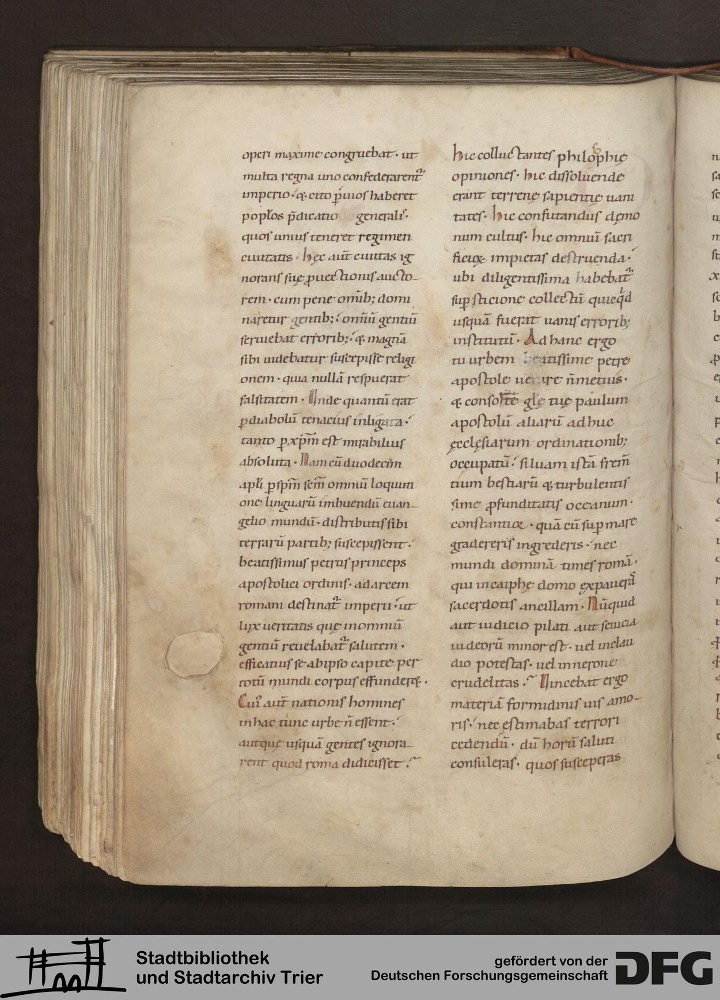 operi maxime congruebat · ut
multa regna uno confederarent᷑
imperio · & cito p̄uios haberet
popłos p̄dicatio generalis ·
quos unius teneret regimen
ciuitatis · hęc aut̄ ciuitas ig
norans suę ꝓuectionis aucto-
rem · cum pene om̄ib; domi
naretur gentib; omiū gentiū
seruiebat errorib; & magnā
sibi uidebatur suscepisse religi
onem · quia nullā respuerat
falsitatem · Unde quantū erat
ꝑ diabolū tenacius inligata ·
tanto ꝑ xp̄m est mirabilius
absoluta · Nam cū duodecim
apłi ꝑ sp̄m sc̄m omniū loquuti
one linguarū imbuendū euan-
gelio mundū · distributis sibi
terrarū partib; suscepissent ·
beatissimus petrus princeps
apostolici ordinis · ad arcem
romani destinat᷑ imperii · ut
lux ueritatis quę in omniū
gentiū reuelabat᷑ salutem ·
efficatius se ab ipso capite per
totū mundi corpus effunderet ·
Cuiꝰ aut̄ nationis homines
in hac tunc urbe n̄ essent ·
autque usquā gentes ignora-
rent quod roma didicisset ·
hic colluctantes philosophię
opiniones · hic dissoluende
erant terrene sapientię uani
tates · hic confutandus demo
num cultus · hic omniū sacri
ficioꝝ impietas destruenda ·
ubi diligentissima habebat᷑
suꝑsticione collectū quicq̇d
usquā fuerat uanis errorib;
institutū · Ad hanc ergo
tu urbem beatissime petre
apostole uenire n̄ metuis ·
& consorte glę tuę paulum
apostolū aliarū adhuc
ęcclęsiarum ordinationib;
occupatū · siluam istā frem̄
tium bestiarū & turbulentis
sime ꝓfunditatis oceanum ·
constantior · quā cū suꝑ mare
gradereris ingrederis · nec
mundi dominā times romā ·
qui in caiphe domo expauerā
sacerdotis ancillam · Nūquid
aut iudicio pilati aut seuicia
iudeorū minor est · uel in clau
dio potestas · uel in nerone
crudelitas · Uincebat ergo
materiā formidinis uis amo-
ris · nec estimabas terrori
cedendū · dū horū saluti
consuleras · quos susceperas
Stadtbibliothek
und Stadtarchiv Trier
gefördert von der
Deutschen Forschungsgemeinschaft
DFG